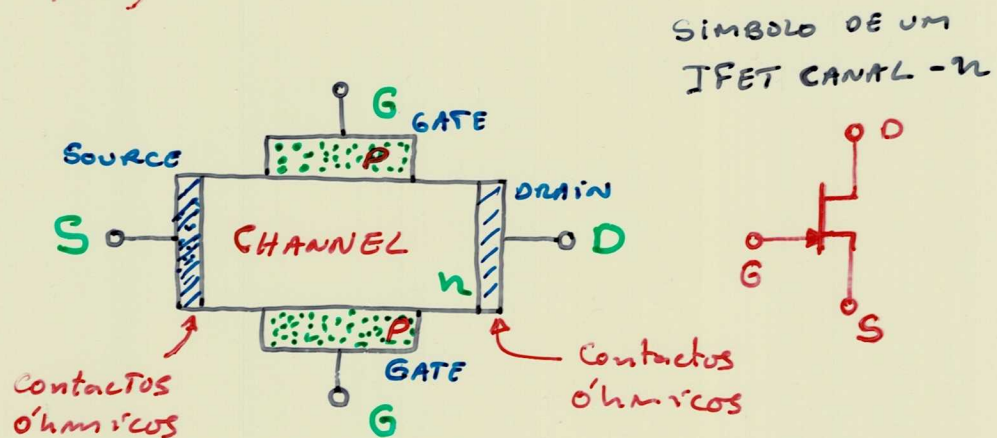 SIMBOLO DE UM
JFET CANAL - n
G
GATE
P
SOURCE
DRAIN
S
CHANNEL
D
n
P
GATE
G
Contactos
óhmicos
Contactos
óhmicos
D
G
S